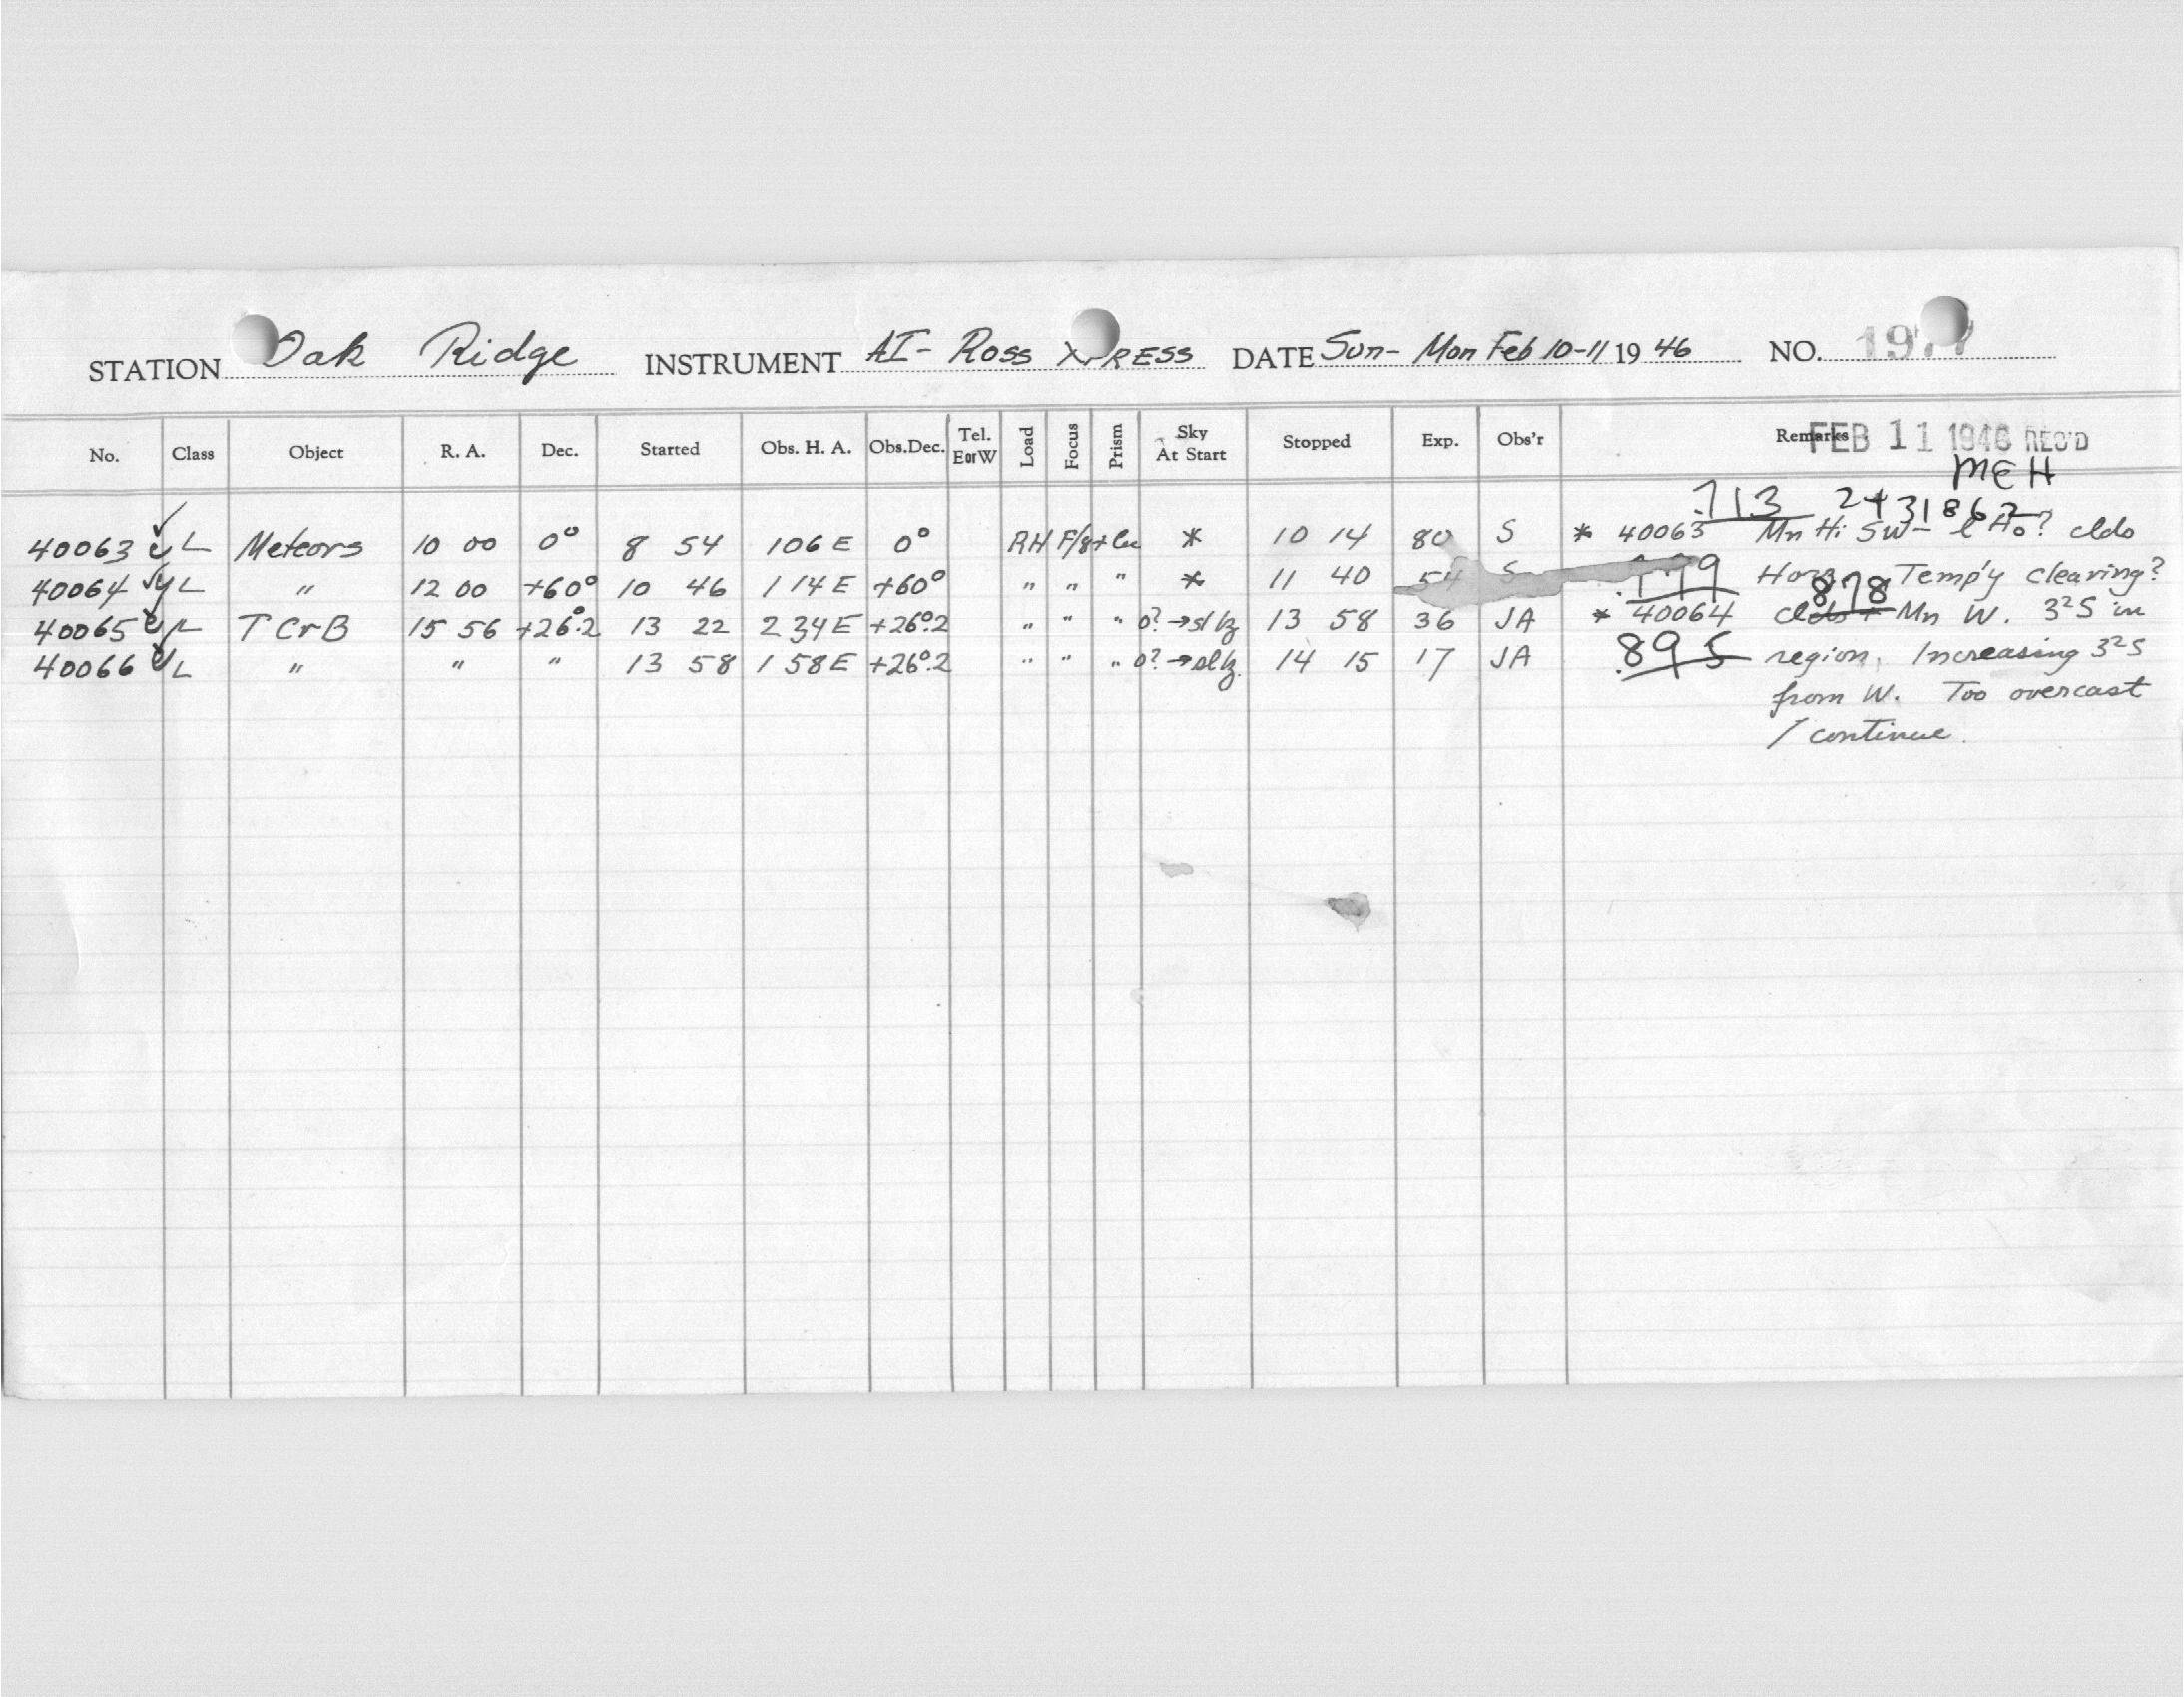 STATION Oak Ridge INSTRUMENT AI- Ross XPRESS DATE Sun- Mon Feb 10-11 1946 NO. 197
No. Class Object R. A. Dec. Started Obs. H. A. Obs.Dec. Tel. EorW Load Focus Prism Sky At Start Stopped Exp. Obs'r Remarks
FEB 11 1946 REC'D
MEH
.713 243186
40063 L Meteors 10 00 0° 8 54 1 06 E 0° RH F/8 * 10 14 80 S * 40063 Mn Hi SW-
40064 L " 12 00 +60° 10 46 1 14 E +60° " " " * 11 40 54 S Temp'y clearing?
.878
40065 L T CrB 15 56 +26°.2 13 22 2 34 E +26°.2 " " " 0? → sl 13 58 36 JA * 40064 Mn W. 3²S in
40066 L " " " 13 58 1 58 E +26°.2 " " " 0? → 14 15 17 JA .895 region. Increasing 3²S
from W. Too overcast
/ continue.